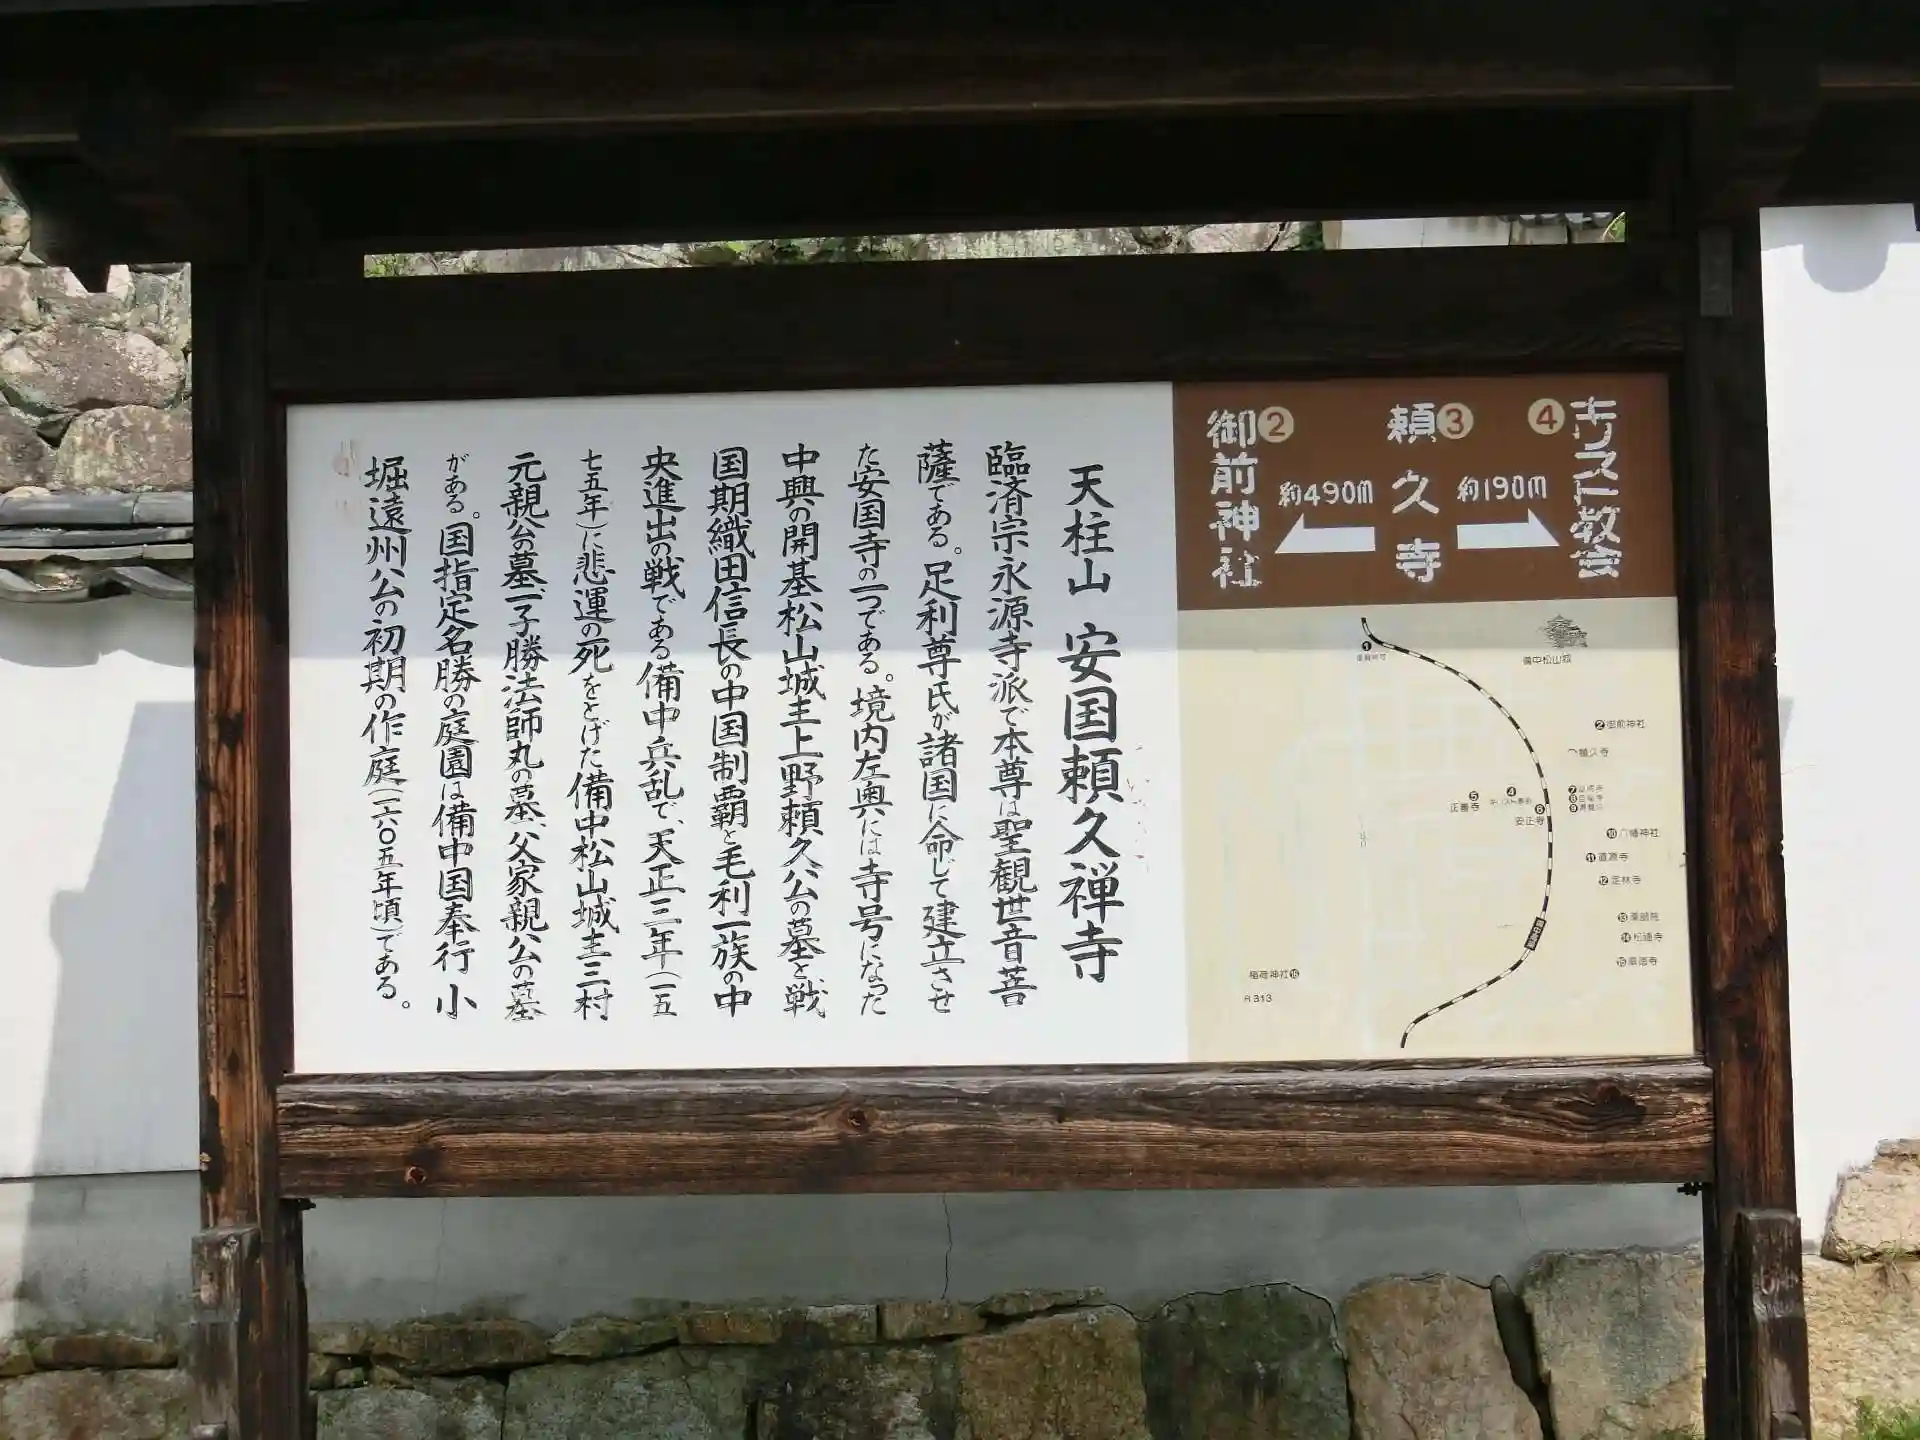 天柱山 安国頼久禅寺
臨済宗永源寺派で本尊は聖観世音菩
薩である。足利尊氏が諸国に命じて建立させ
た安国寺の一つである。境内左奥には寺号になった
中興の開基松山城主上野頼久公の墓と戦
国期織田信長の中国制覇と毛利一族の中
央進出の戦である備中兵乱で、天正三年(一五
七五年)に悲運の死をとげた備中松山城主三村
元親公の墓、子勝法師丸の墓、父家親公の墓
がある。国指定名勝の庭園は備中国奉行小
堀遠州公の初期の作庭(一六〇五年頃)である。
④キリスト教会
約190m
③頼久寺
約490m
②御前神社
①
備中松山城
②御前神社
頼久寺
④
⑤
正善寺
⑥
安正寺
⑦
⑧
⑨
⑩八幡神社
⑪道源寺
⑫定林寺
⑬薬師院
⑭松連寺
⑮
稲荷神社⑯
R313